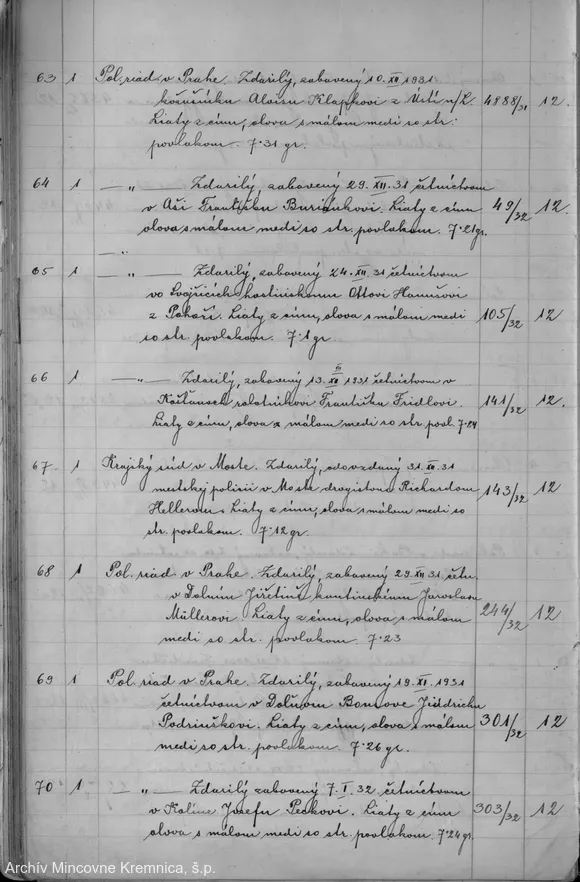 63 1 Pol. riad. v Prahe. Zdarilý, zabavený 10. XII 1931
kožušníku Aloisu Klapkovi z Ústí n/L. 4888/31 12.
Liaty z cínu, olova s málom medi so str.
povlakom. 7·31 gr.
64 1 — „ — Zdarilý, zabavený 29. XII. 31 četníctvom
v Aši Františku Buriánkovi. Liaty z cínu 49/32 12.
olova s málom medi so str. povlakom. 7·21 gr.
— „
65 1 — „ — Zdarilý, zabavený 24. XII. 31 četníctvom
vo hostinskému Ottovi Hanušovi
z Liaty z cínu, olova s málom medi 105/32 12
so str. povlakom. 7·1 gr.
66 1 — „ — Zdarilý, zabavený 13. XII 1931 četníctvom v
Košťanech Františku Fridlovi. 141/32 12.
Liaty z cínu, olova z málom medi so str. povl. 7·24
67 1 Krajský súd v Moste. Zdarilý, odovzdaný 31. XII. 31
mestskej polícii v Moste drogistom Richardom 143/32 12
Hellerom. Liaty z cínu, olova s málom medi so
str. povlakom. 7·12 gr.
68 1 Pol. riad v Prahe. Zdarilý, zabavený 29 XII 31. četn.
v Dolním Jiřetíně kantinskému Jaroslavu
Müllerovi. Liaty z cínu, olova s málom 244/32 12
medi so str. povlakom. 7·23
69 1 Pol. riad v Prahe. Zdarilý, zabavený 19. XI. 1931
četníctvom v Dolnom Jindrichu 301/32 12
Liaty z cínu, olova s málom
medi so str. povlakom. 7·26 gr.
70 1 — „ — Zdarilý zabavený 7. I. 32 četníctvom
v Kolíne Josefu Liaty z cínu 303/32 12
olova s málom medi so str. povlakom. 7·24 gr.
Archív Mincovne Kremnica, š.p.